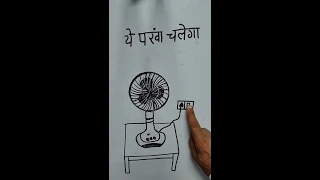 ये पखां चलेगा